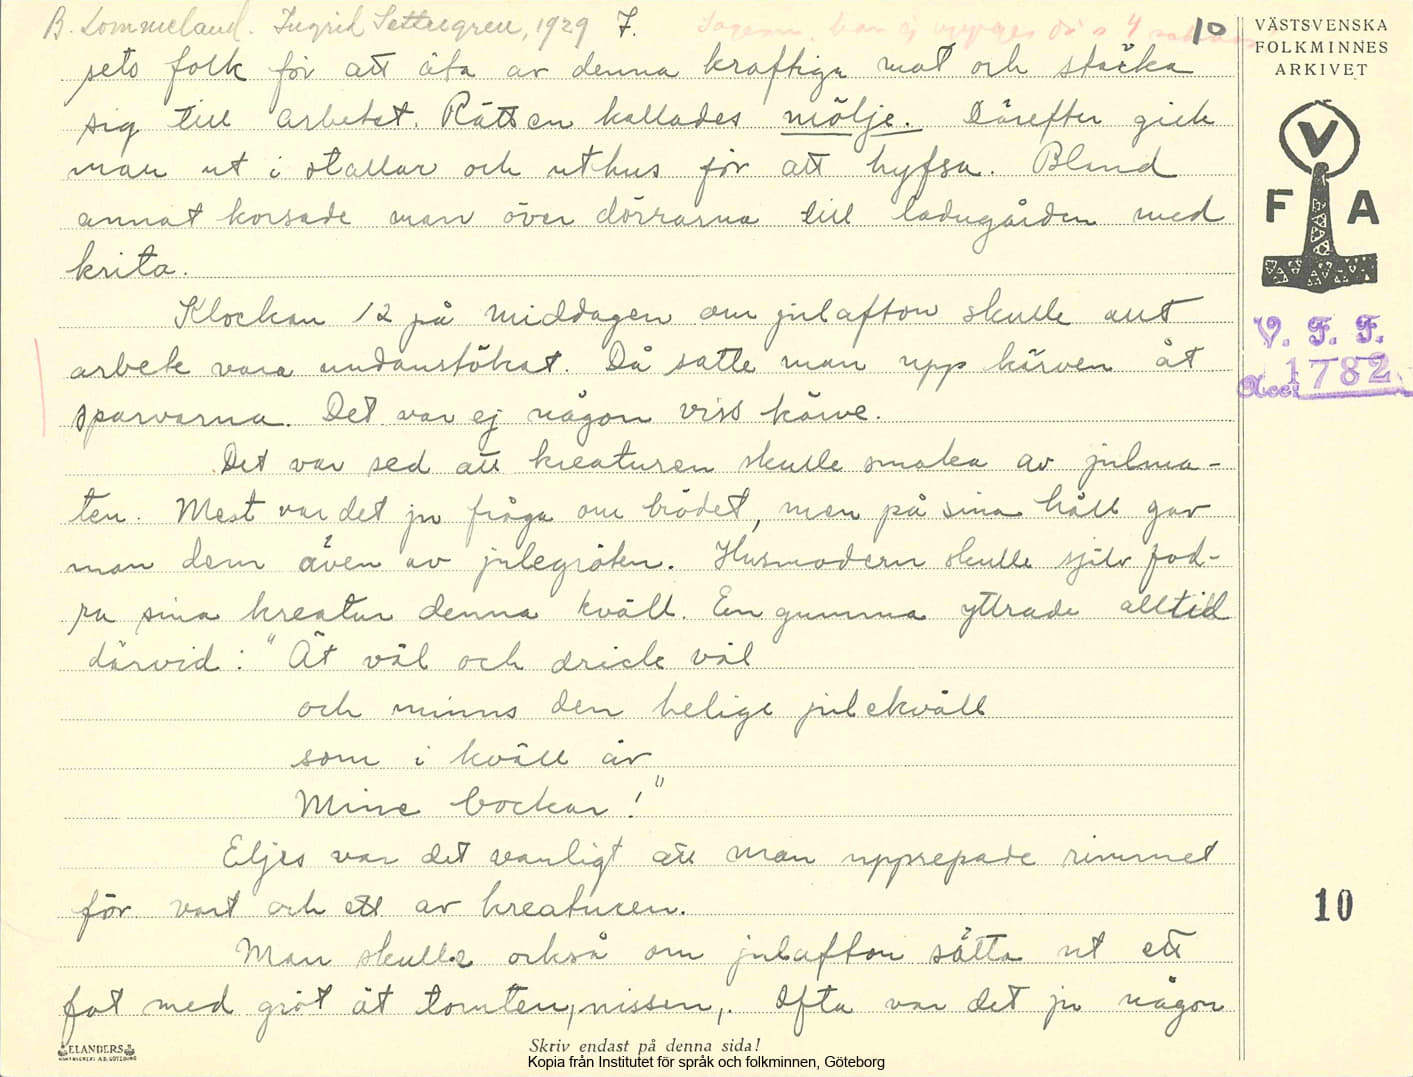 B. Lommeland. Ingrid Settergren, 1929 7.
10
VÄSTSVENSKA
FOLKMINNES
ARKIVET
sets folk för att äta av denna kraftiga mat och stärka
sig till arbetet. Rätten kallades mölje. Därefter gick
man ut i stallar och uthus för att hyfsa. Bland
annat korsade man över dörrarna till ladugården med
krita.
V
F A
Klockan 12 på middagen om julafton skulle allt
V. F. F.
arbete vara undanstökat. Då satte man upp kärven åt
Acc. 1782
sparvarna. Det var ej någon viss kärve.
Det var sed att kreaturen skulle smaka av julma-
ten. Mest var det ju fråga om brödet, men på sina håll gav
man dem även av julegröten. Husmodern skulle själv fod-
ra sina kreatur denna kväll. En gumma yttrade alltid
därvid: "Ät väl och drick väl
och minns den helige julekväll
som i kväll är
Mine bockar!"
Eljes var det vanligt att man upprepade rimmet
för vart och ett av kreaturen.
10
Man skulle också om julafton sätta ut ett
fat med gröt åt tomten, nissen,. Ofta var det ju någon
ELANDERS
Skriv endast på denna sida!
Kopia från Institutet för språk och folkminnen, Göteborg